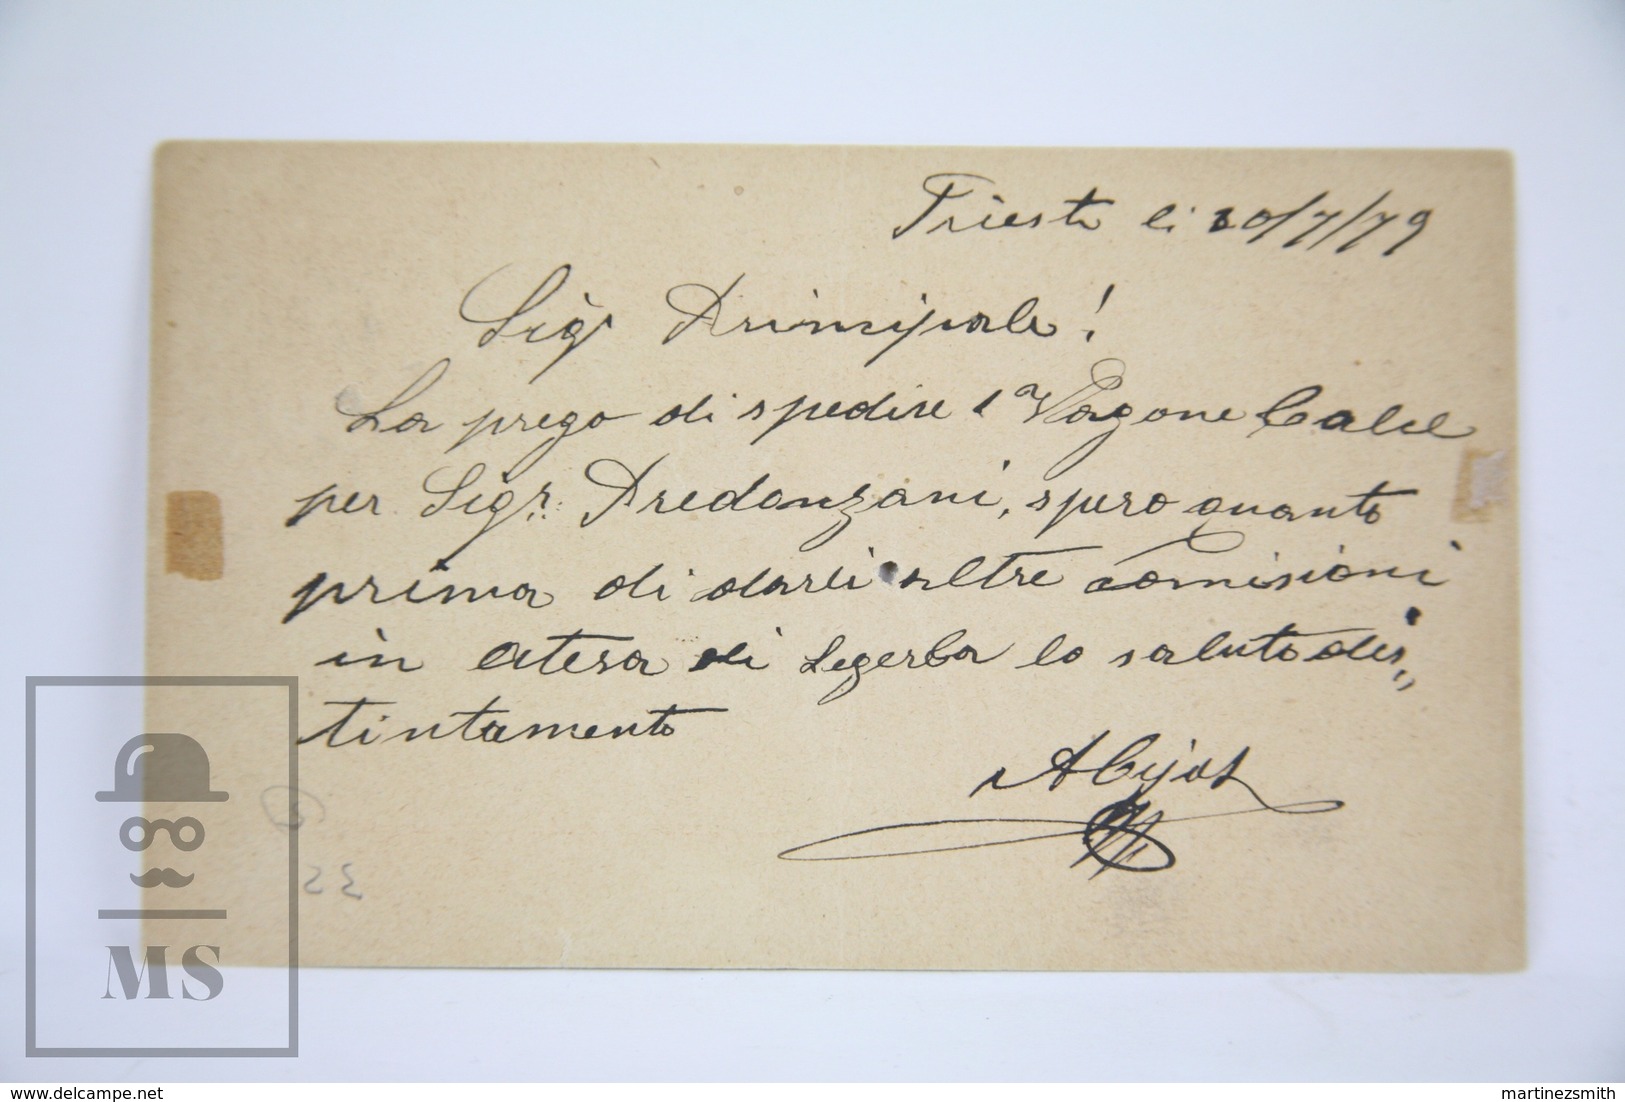 Trieste li 10/7/79
Sigr Principale!
La prego di spedire 1 Vagone Calce
per Sigr. Predanzani, spero quanto
prima di darli altre Comisioni
in atesa di Legerla lo saluto dis„
tintamento
23
MS
delcampe.net
martinezsmith